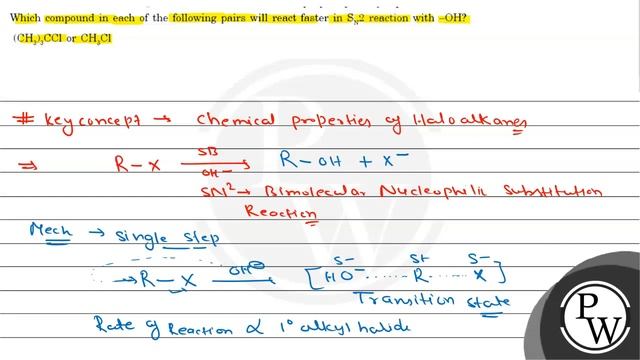 Which compound in each of the following pairs will react faster in SN2 reaction with –OH?
(CH3)3CCl or CH3Cl
# Key concept → Chemical properties of Haloalkanes
⇒ R–X SB OH– R–OH + X–
SN2 → Bimolecular Nucleophilic Substitution
Reaction
Mech → Single Step
→R–X OH⊖ [HO–.....R.....X]
S– S+ S–
Transition State
Rate of Reaction ∝ 1° alkyl halide
PW